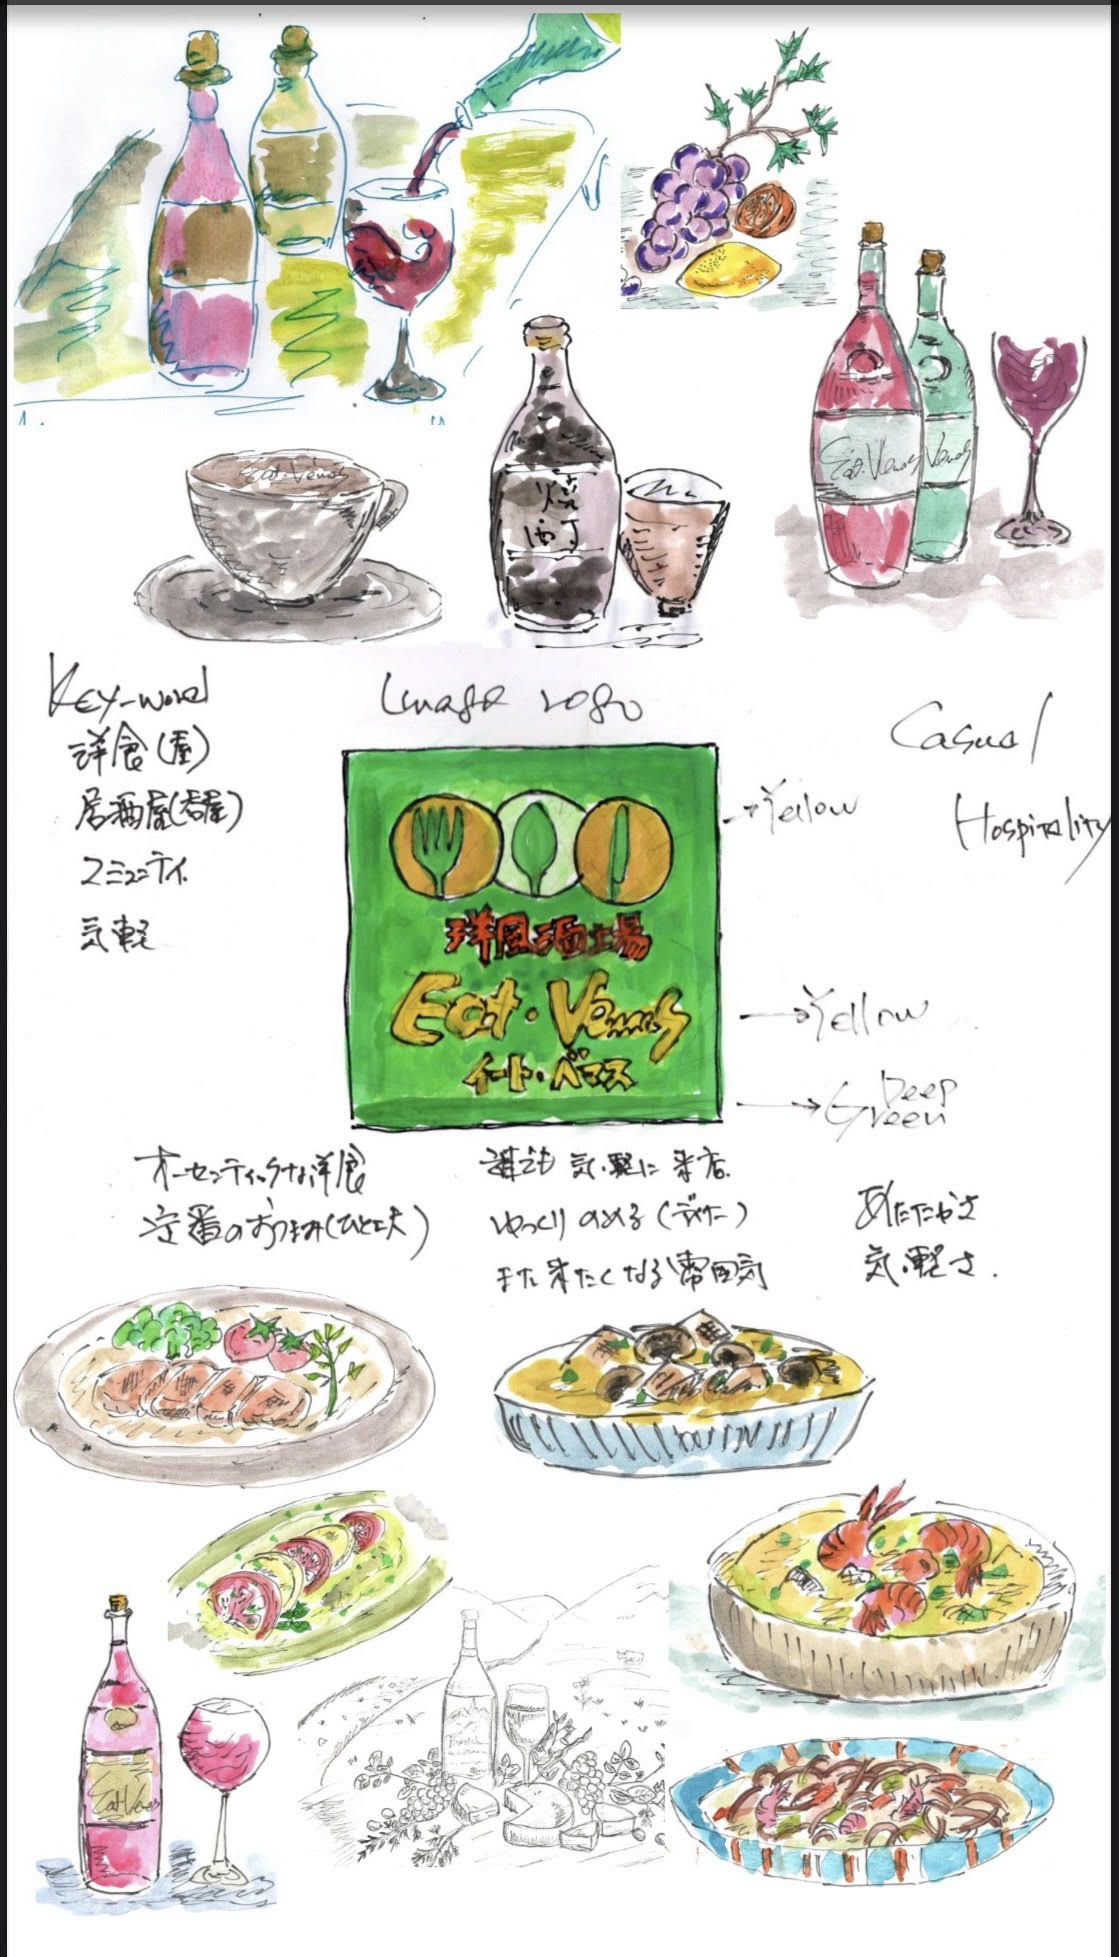 Eat・Venus
焼酎
Eat・Venus
Venus
KEY-word
洋食(屋)
居酒屋(居屋)
コミュニティ
気軽
Image logo
洋風酒場
Eat・Venus
イート・ベマス
→Yellow
→Yellow
→Deep Green
Casual
Hospitality
オーセンティックな洋食
定番のおつまみ(ひと工夫)
誰でも 気軽に 来店.
ゆっくり のめる
また 来たくなる 雰囲気
あたたかさ
気軽さ.
Eat・Venus